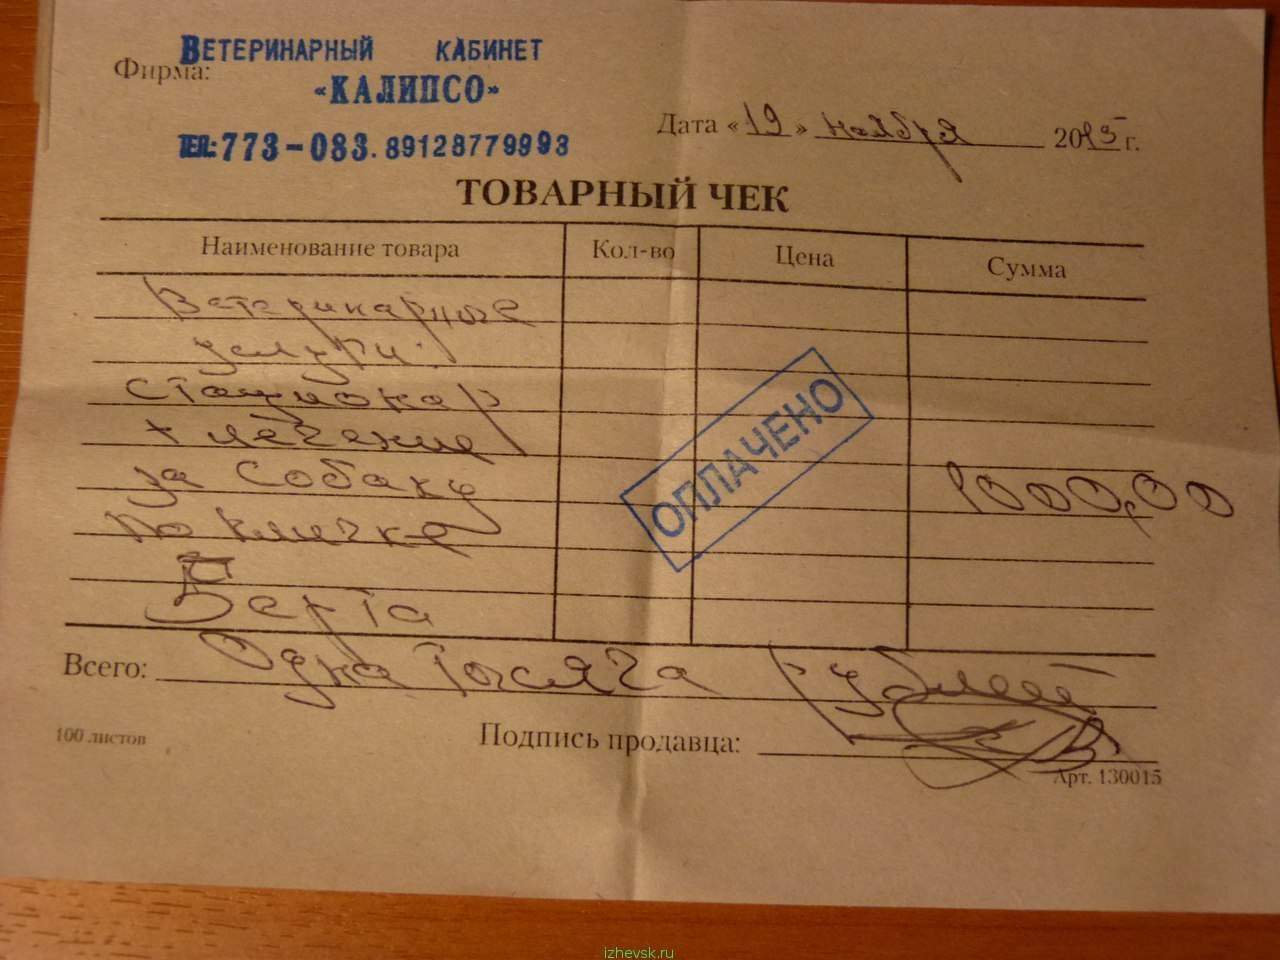 Фирма:
ВЕТЕРИНАРНЫЙ КАБИНЕТ
«КАЛИПСО»
ТЕЛ.: 773-083. 89128779993
Дата «19» ноября 2015 г.
ТОВАРНЫЙ ЧЕК
Наименование товара Кол-во Цена Сумма
Ветеринарные
услуги.
стационар
+ лечение
за собаку 1000,00
по кличке
Берта
ОПЛАЧЕНО
Всего: Одна тысяча рублей
100 листов
Подпись продавца:
Арт. 130015
izhevsk.ru